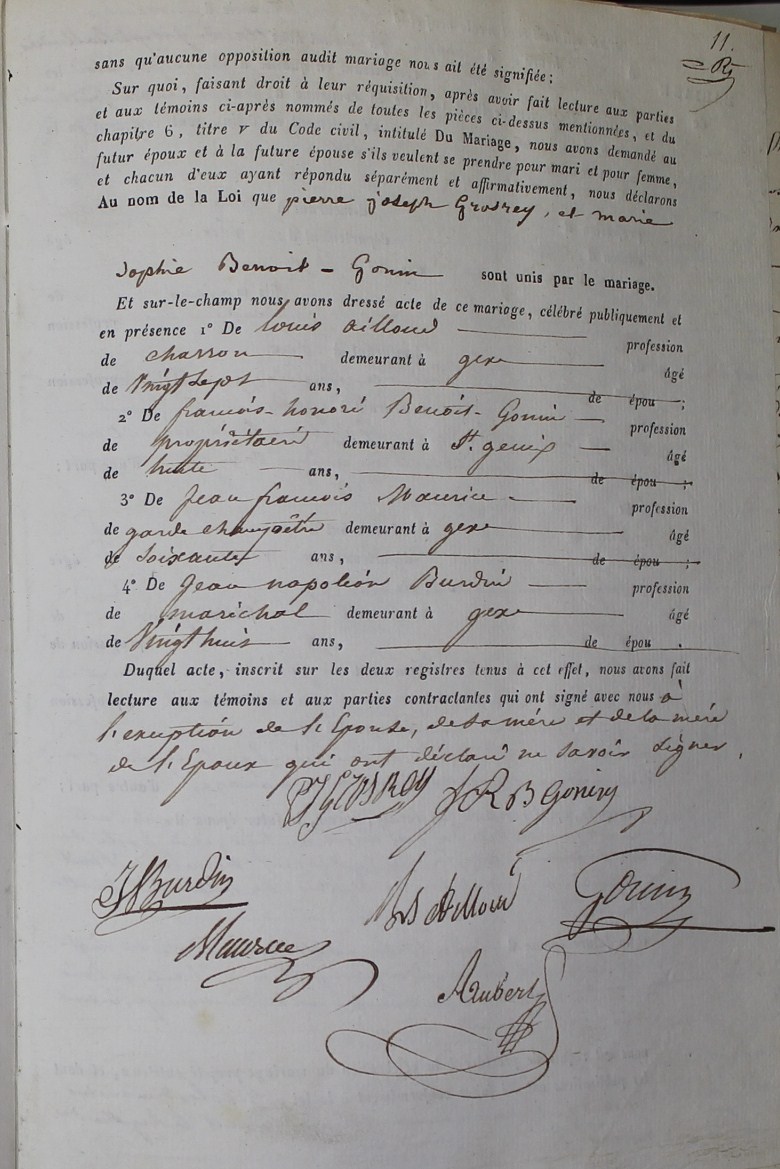 11.
sans qu'aucune opposition audit mariage nous ait été signifiée;
Sur quoi, faisant droit à leur réquisition, après avoir fait lecture aux parties
et aux témoins ci-après nommés de toutes les pièces ci-dessus mentionnées, et du
chapitre 6, titre v du Code civil, intitulé Du Mariage, nous avons demandé au
futur époux et à la future épouse s'ils veulent se prendre pour mari et pour femme,
et chacun d'eux ayant répondu séparément et affirmativement, nous déclarons
Au nom de la Loi que pierre joseph Grosrey, et marie
Sophie Benoit-Gonin sont unis par le mariage.
Et sur-le-champ nous avons dressé acte de ce mariage, célébré publiquement et
en présence 1° De louis ailloud profession
de charron demeurant à gex âgé
de Vingt Sept ans, de épou ;
2° De françois-honoré Benoit-Gonin profession
de propriétaire demeurant à St. genix âgé
de trente ans, de épou ;
3° De Jean françois Maurice profession
de garde champêtre demeurant à gex âgé
de Soixante ans, de épou ;
4° De Jean napoléon Burdin profession
de maréchal demeurant à gex âgé
de Vingt huit ans, de épou .
Duquel acte, inscrit sur les deux registres tenus à cet effet, nous avons fait
lecture aux témoins et aux parties contractantes qui ont signé avec nous à
l'exeption de l'Epouse, de sa mére et de la mére
de l'Epoux qui ont déclaré ne Savoir Signer.
PJ Grosrey J R B Gonin
JN Burdin Ls Ailloud Gonin
Maurice
Aubert